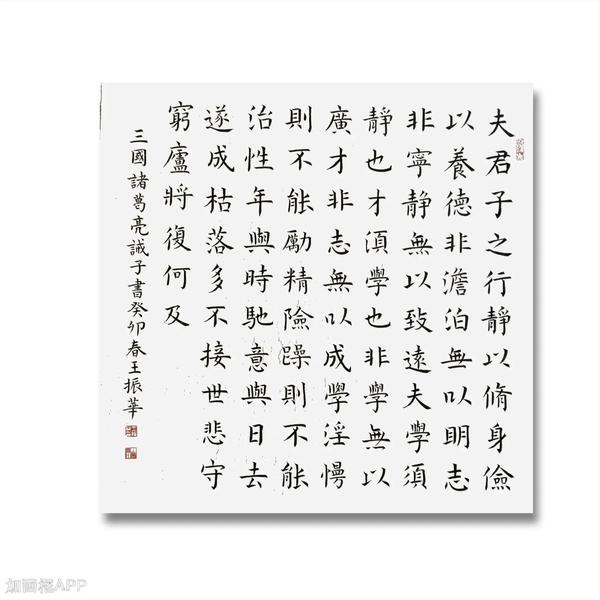 夫君子之行靜以脩身儉
以養德非澹泊無以明志
非寧靜無以致遠夫學須
靜也才湏學也非學無以
廣才非志無以成學淫慢
則不能勵精險躁則不能
治性年與時馳意與日去
遂成枯落多不接世悲守
窮廬將復何及
三國諸葛亮誡子書癸卯春王振華
如画框APP